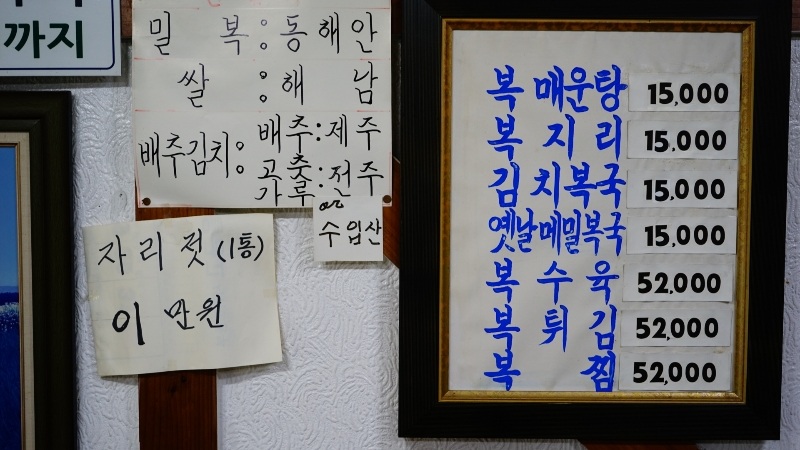 까지
밀 복 : 동해안
쌀 : 해 남
배추김치 : 배추 : 제주
고춧가루 : 전주
수입산
자리젓 (1통)
이 만원
복 매운탕 15,000
복 지 리 15,000
김 치 복 국 15,000
옛날메밀복국 15,000
복 수 육 52,000
복 튀 김 52,000
복 찜 52,000